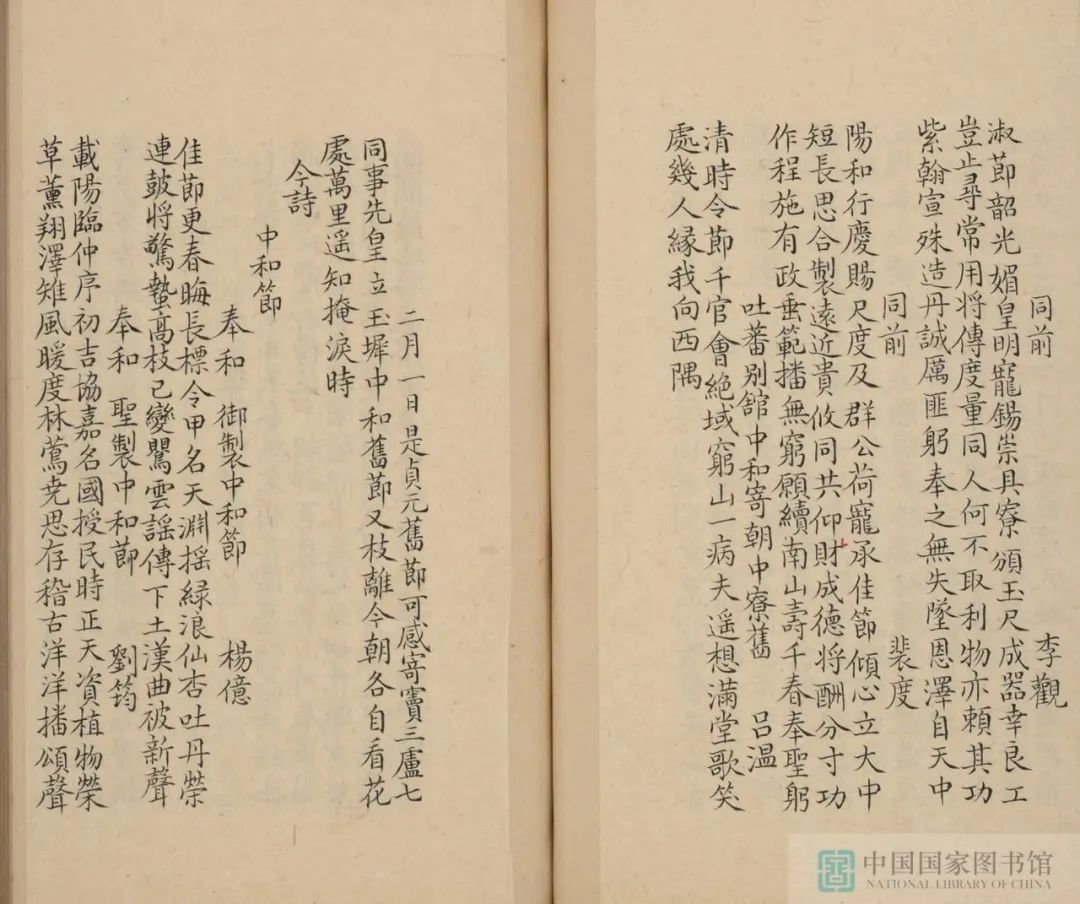 同前　李觀
淑節韶光媚皇明寵錫崇具寮頒玉尺成器幸良工
豈止尋常用將傳度量同人何不取利物亦賴其功
紫翰宣殊造丹誠厲匪躬奉之無失墜恩澤自天中
同前　裴度
陽和行慶賜尺度及群公荷寵承佳節傾心立大中
短長思合製遠近貴攸同共仰財成德將酬分寸功
作程施有政垂範播無窮願續南山壽千春奉聖躬
吐蕃別舘中和寄朝中寮舊　呂温
清時令節千官會絶域窮山一病夫遥想滿堂歌笑
處幾人緣我向西隅
二月一日是貞元舊節可感寄竇三盧七
同事先皇立玉墀中和舊節又枝離今朝各自看花
處萬里遥知掩淚時
今詩
中和節
奉和　御製中和節　楊億
佳節更春晦長標令甲名天淵揺綠浪仙杏吐丹榮
連鼓将驚蟄高枝已變鸎雲謡傳下土漢曲被新聲
奉和　聖製中和節　劉筠
載陽臨仲序初吉協嘉名國授民時正天資植物榮
草薰翔澤雉風暖度林鶯尭思存稽古洋洋播頌聲
中国国家图书馆
NATIONAL LIBRARY OF CHINA